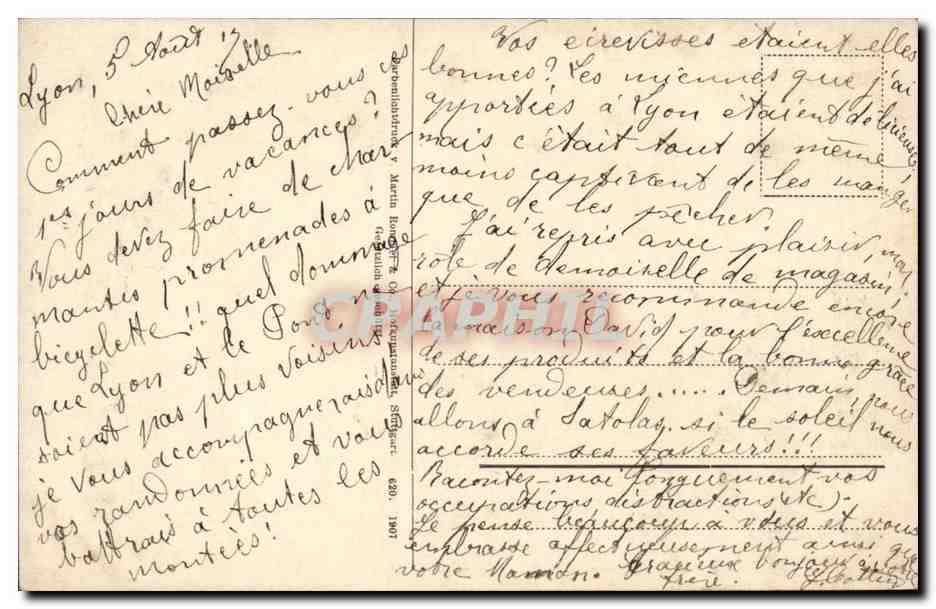 Lyon, 5 Août
Chère Moiselle
Comment passez-vous ces
1ers jours de vacances?
Vous devez faire de char
mantes promenades à
bicyclette!! quel dommage
que Lyon et le Pond, ne
soient pas plus voisins
je vous accompagnerais dans
vos randonnées et vous
battrais à toutes les
montées!
Farbenlichtdruck v. Martin Rommel & Co., Hofkunstanstalt, Stuttgart.
620. 1907
Vos écrevisses étaient-elles
bonnes? Les miennes que j'ai
apportées à Lyon étaient délicieuses
mais c'était tout de même
moins captivant de les manger
que de les pêcher.
J'ai repris avec plaisir, mon
rôle de demoiselle de magasin,
et je vous recommande encore
la maison David pour l'excellence
de ses produits et la bonne grâce
des vendeuses..... Demain, nous
allons à Satolas, si le soleil nous
accorde ses faveurs!!!
Racontez-moi longuement vos
occupations distractions etc)-
Je pense beaucoup à vous et vous
embrasse affectueusement ainsi que
votre Maman. Gracieux bonjour à votre
frère.
CARPHIL